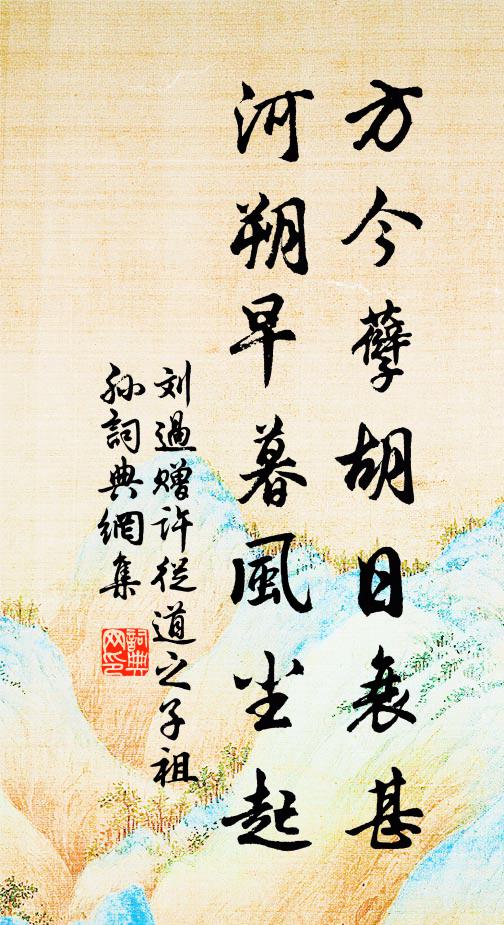 方今孽胡日衰甚
河朔早暮風尘起
刘過赠许從道之子祖
孙詞典網集
詞典网印